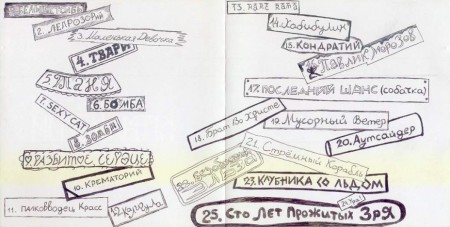 2. Лепрозорий
3. Маленькая Девочка
4. ТВАРИ
5. ТАНЯ
6. БОМБА
7. SEXY CAT
8. ЗОМБИ
9. РАЗБИТОЕ СЕРДЦЕ
10. КРЕМАТОРИЙ
11. ПОЛКОВОДЕЦ Красс
12. Каргула
14. Хабибулин
15. КОНДРАТИЙ
16. ПАВЛИК МОРОЗОВ
17. ПОСЛЕДНИЙ ШАНС (собачка)
18. Брат Во Христе
19. Мусорный Ветер
20. Аутсайдер
21. Стрёмный Корабль
23. КЛУБНИКА СО ЛЬДОМ
25. Сто Лет Прожитых Зря